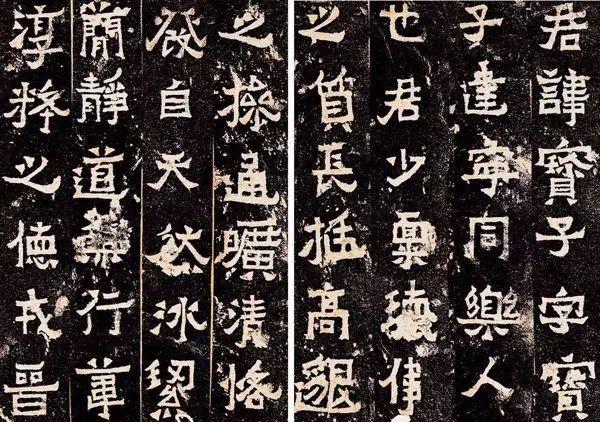 君諱寶子字寶
子建寧同樂人
也君少稟瓌偉
之質長挺高邈
之操通曠清恪
發自天然氷絜
簡靜道兼行葦
淳粹之德戎晉